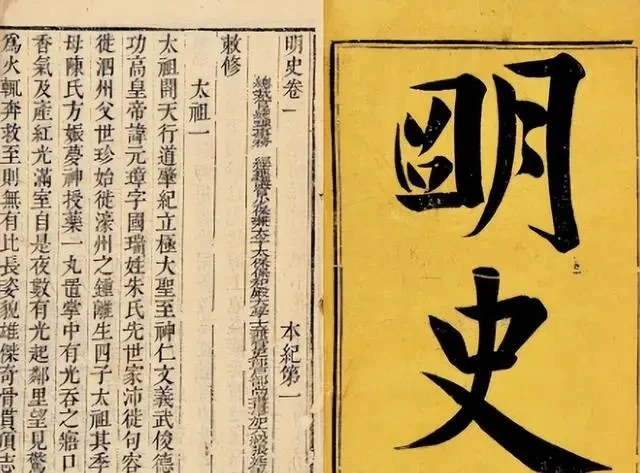 明史
明史卷一 本紀第一
敕修
太祖一
太祖開天行道肇紀立極大聖至神仁文義武俊德
功高皇帝諱元璋字國瑞姓朱氏先世家沛徙句容
徙泗州父世珍始徙濠州之鍾離生四子太祖其季
母陳氏方娠夢神授藥一丸置掌中有光吞之寤口
香氣及產紅光滿室自是夜數有光起鄰里望見驚
爲火輒奔救至則無有比長姿貌雄傑奇骨貫頂志